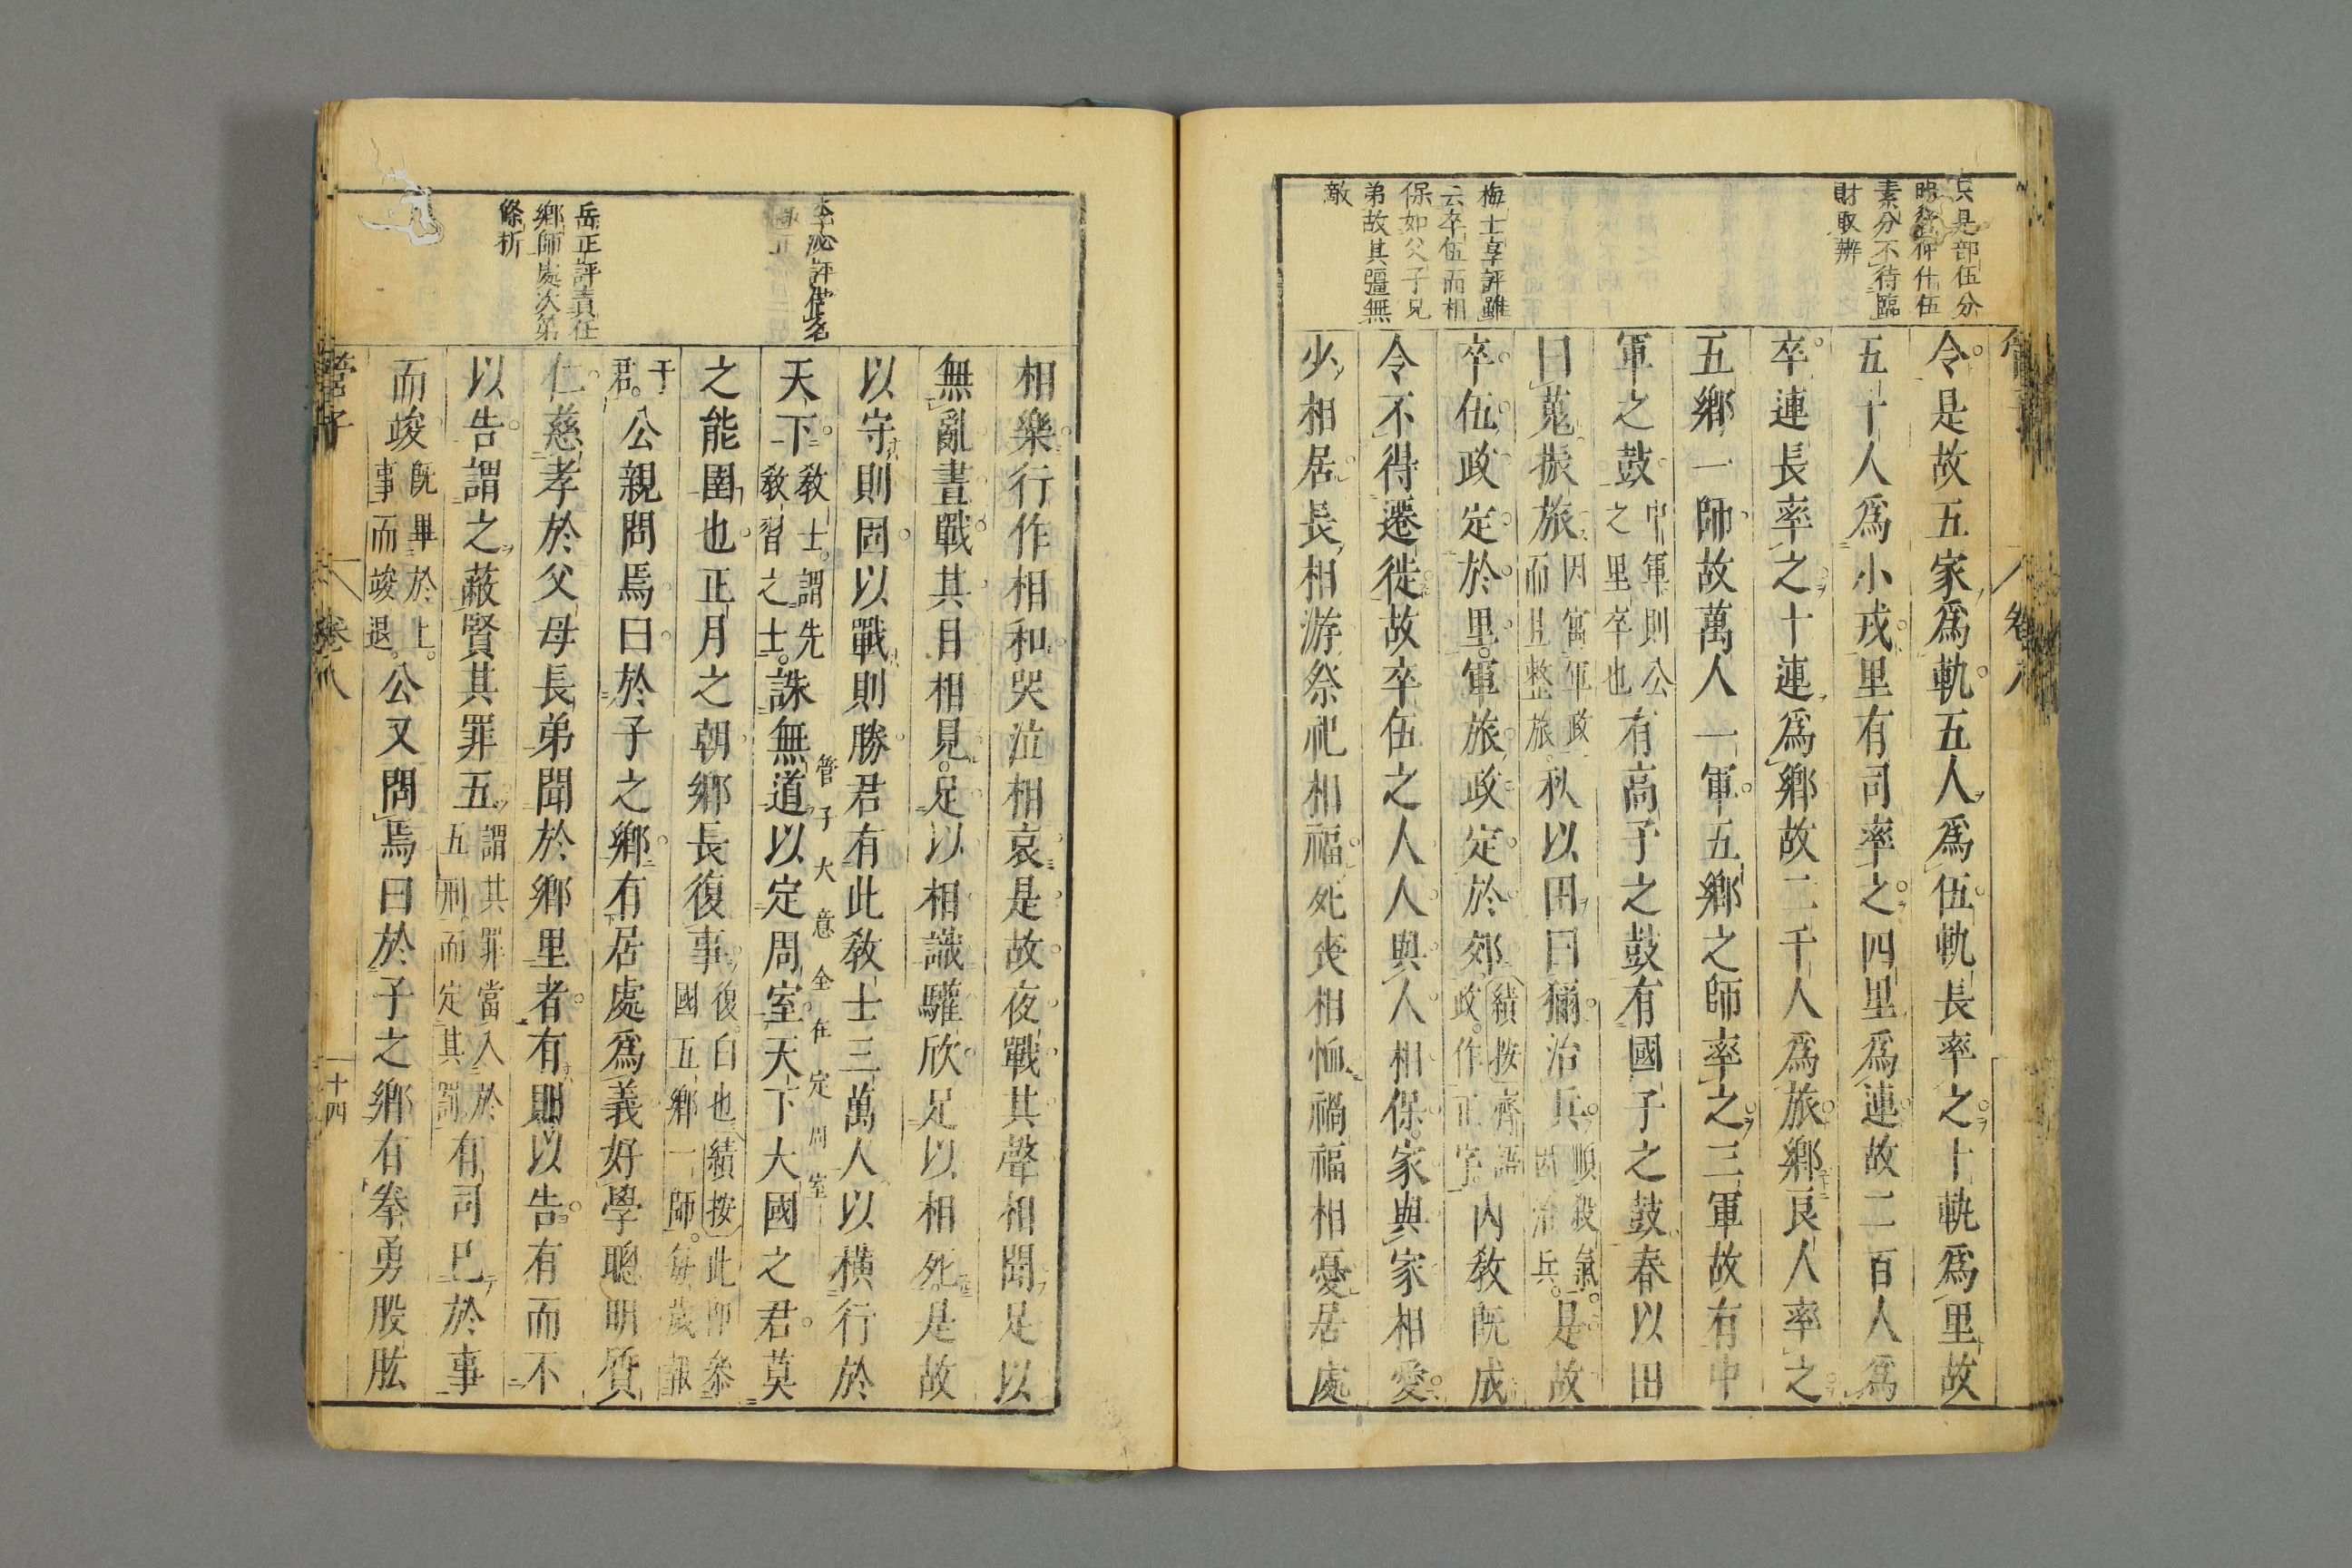 只是部伍分
素分不待臨
財取辨
梅士享評雖
云卒伍而相
保如父子兄
弟故其彊無
敵
令是故五家爲軌五人爲伍軌長率之十軌爲里故
五十人爲小戎里有司率之四里爲連故二百人爲
卒連長率之十連爲鄉故二千人爲旅鄉良人率之
五鄉一師故萬人一軍五鄉之師率之三軍故有中
軍之鼓中軍則公之里卒也有高子之鼓有國子之鼓春以田
曰蒐振旅因寓軍政而且整旅秋以田曰獮治兵順殺氣因治兵是故
卒伍政定於里軍旅政定於郊績按齊語政作正字內敎既成
令不得遷徙故卒伍之人人與人相保家與家相愛
少相居長相游祭祀相福死喪相恤禍福相憂居處
岳正評責任
鄉師處次第
條析
相樂行作相和哭泣相哀是故夜戰其聲相聞足以
無亂晝戰其目相見足以相識驩欣足以相死是故
以守則固以戰則勝君有此敎士三萬人以橫行於
管子大意全在定周室
天下敎士謂先敎習之士誅無道以定周室天下大國之君莫
之能圉也正月之朝鄉長復事復白也績按此即參國五鄉一師每歲報
于君公親問焉曰於子之鄉有居處爲義好學聰明質
仁慈孝於父母長弟聞於鄉里者有則以告有而不
以告謂之蔽賢其罪五謂其罪當入於五刑而定其罰有司已於事
而竣旣畢於上事而竣退公又問焉曰於子之鄉有拳勇股肱
管子
卷八
十四